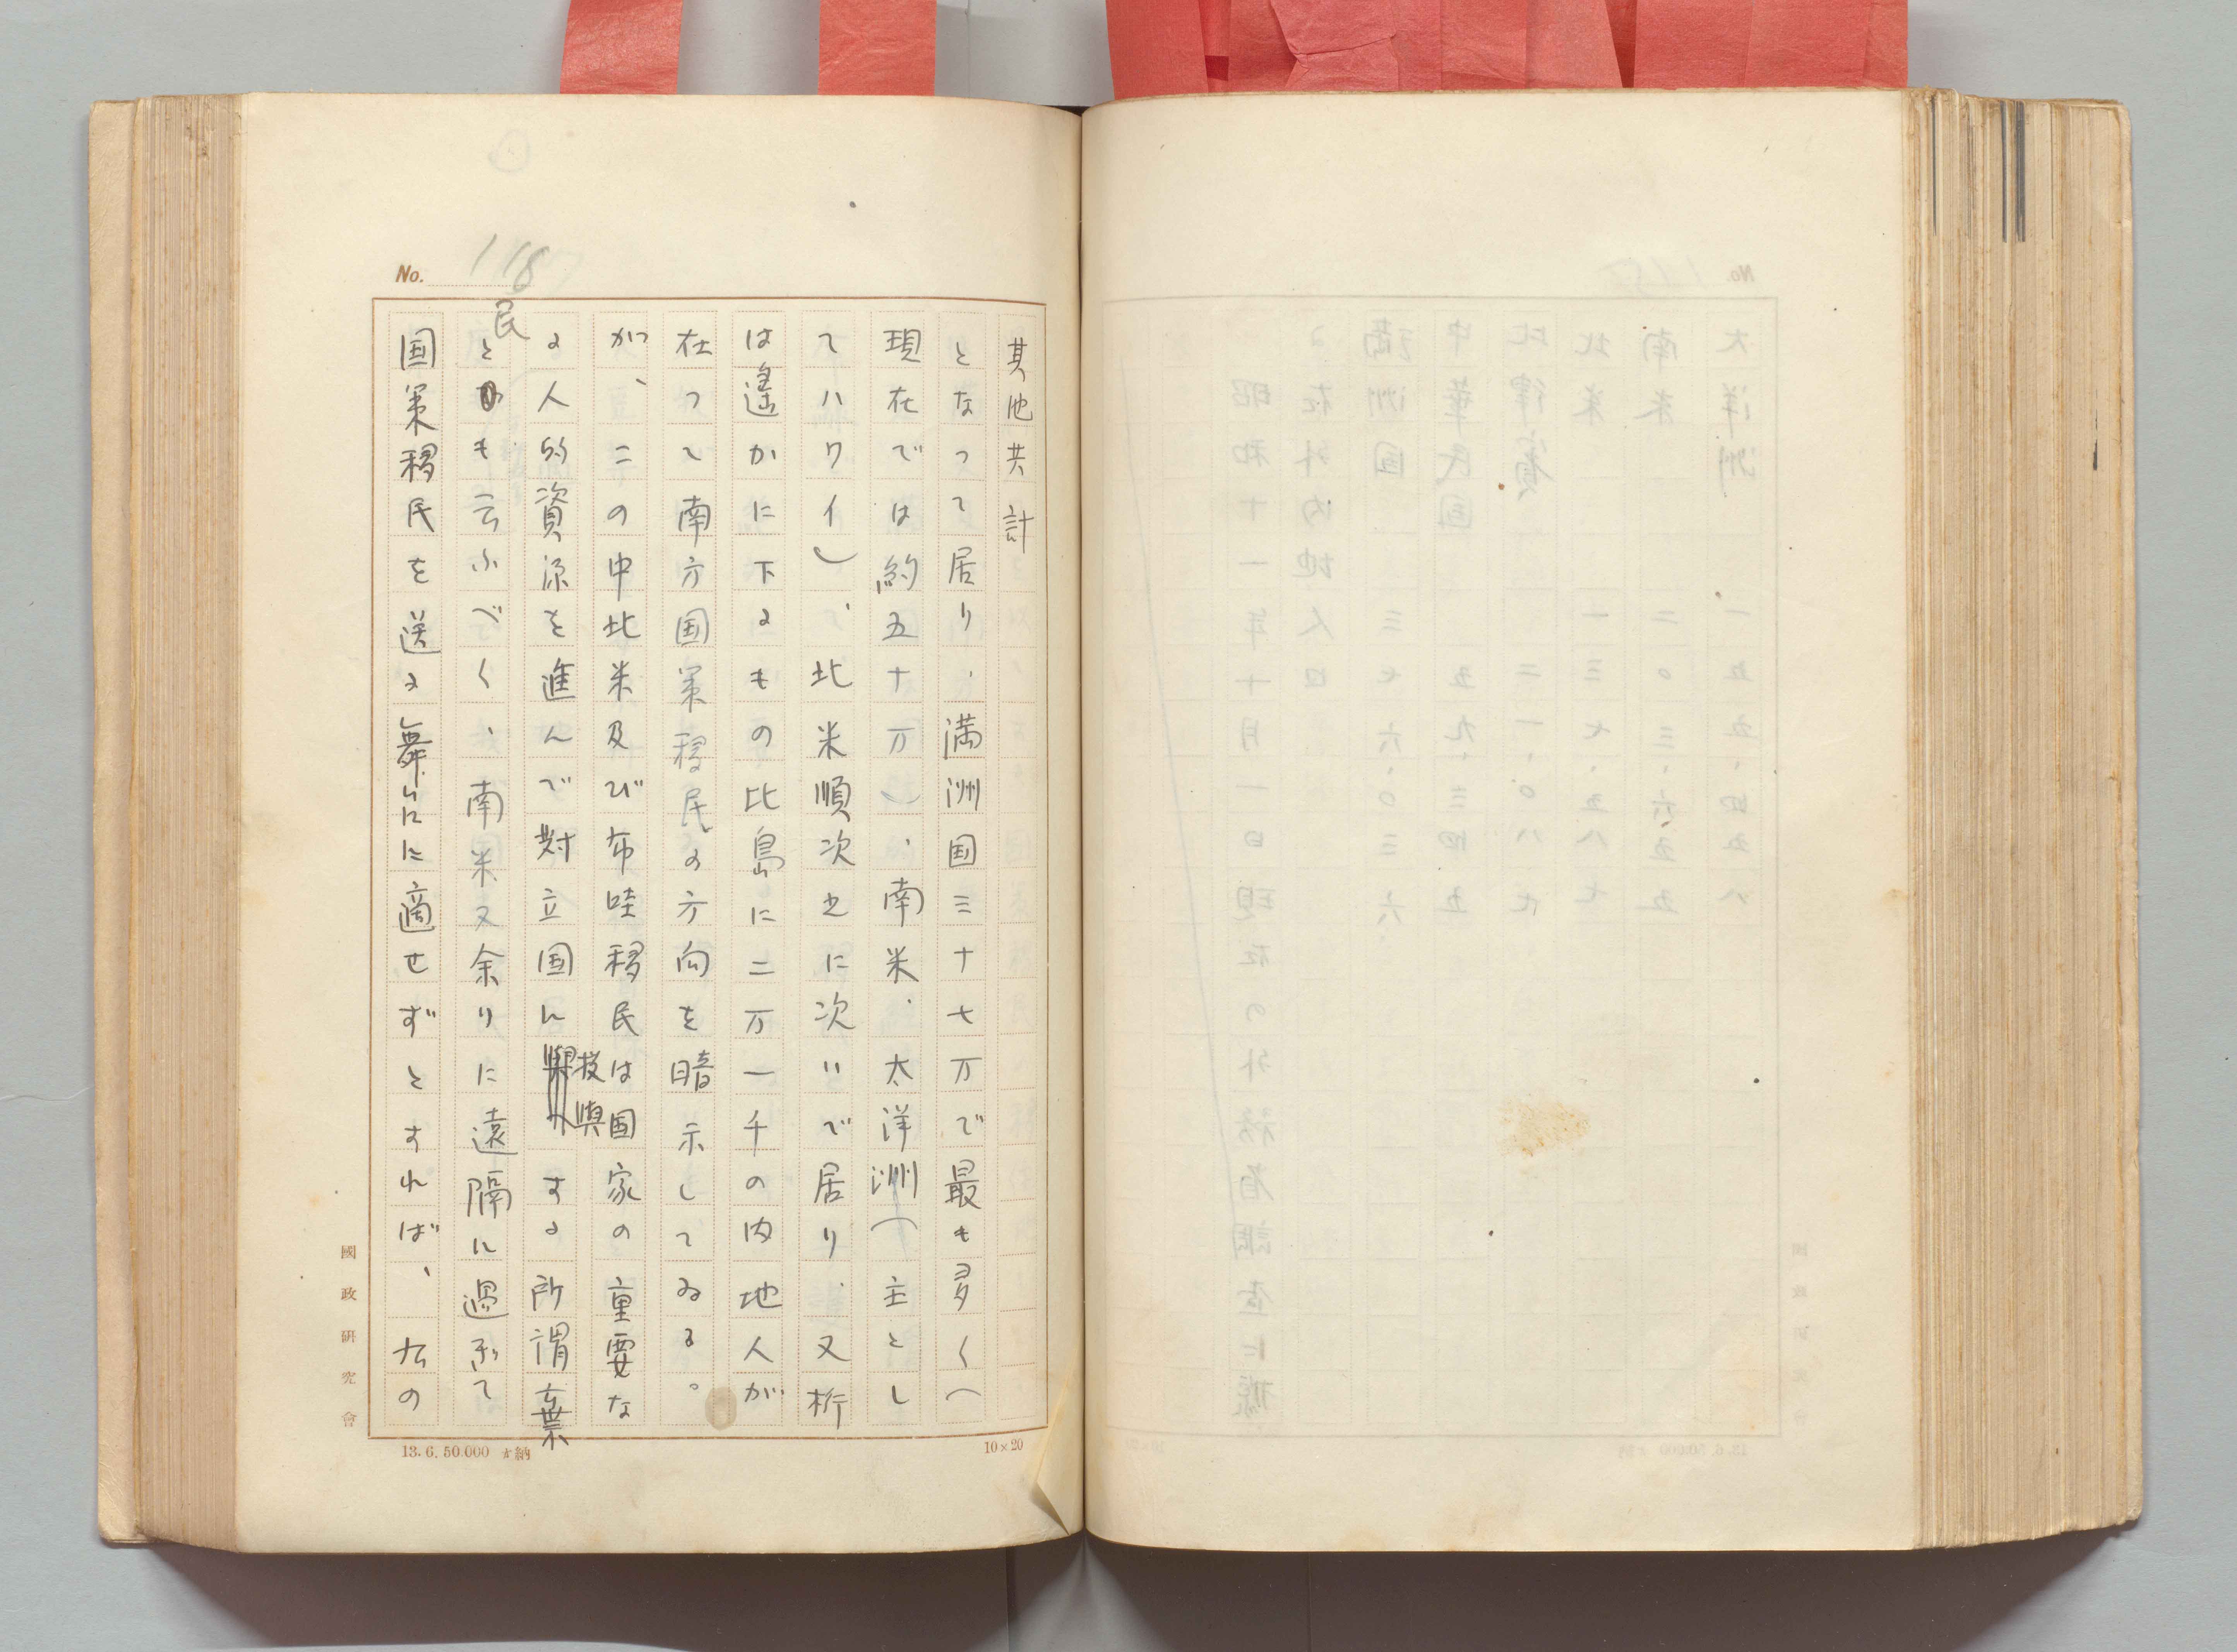 No. 118
其他共計
となつて居り、満洲国三十七万で最も多く(
現在では約五十万)、南米、太洋洲(主とし
てハワイ)、北米順次之に次いで居り、又析
は遙かに下るもの比島に二万一千の内地人が
在つて南方国策移民の方向を暗示してゐる。
かつ、この中北米及び布哇移民は国家の重要な
る人的資源を進んで対立国に投與する所謂棄
民とも云ふべく、南米又余りに遠隔に過ぎて
国策移民を送る舞台に適せずとすれば、右の
國政研究會
13. 6. 50.000 納
10×20